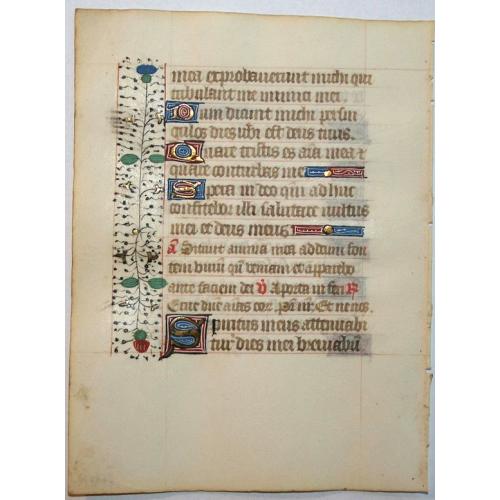 mea exprobauerunt michi qui
tribulant me inimici mei.
Dum dicunt michi per sin
gulos dies ubi est deus tuus.
Quare tristis es aīa mea ⁊
quare conturbas me
Spera in deo qm̄ ad huc
confitebor illi salutare uultus
mei et deus meus
a Sitiuit anima mea ad deum fon
tem uiuū qn̄ ueniam et apparebo
ante faciem dei V A porta inferi R
Erue dn̄e aīas eor. Pr̄ nr̄. Et ne nos.
Spiritus meus attenuabi
tur dies mei breuiabū